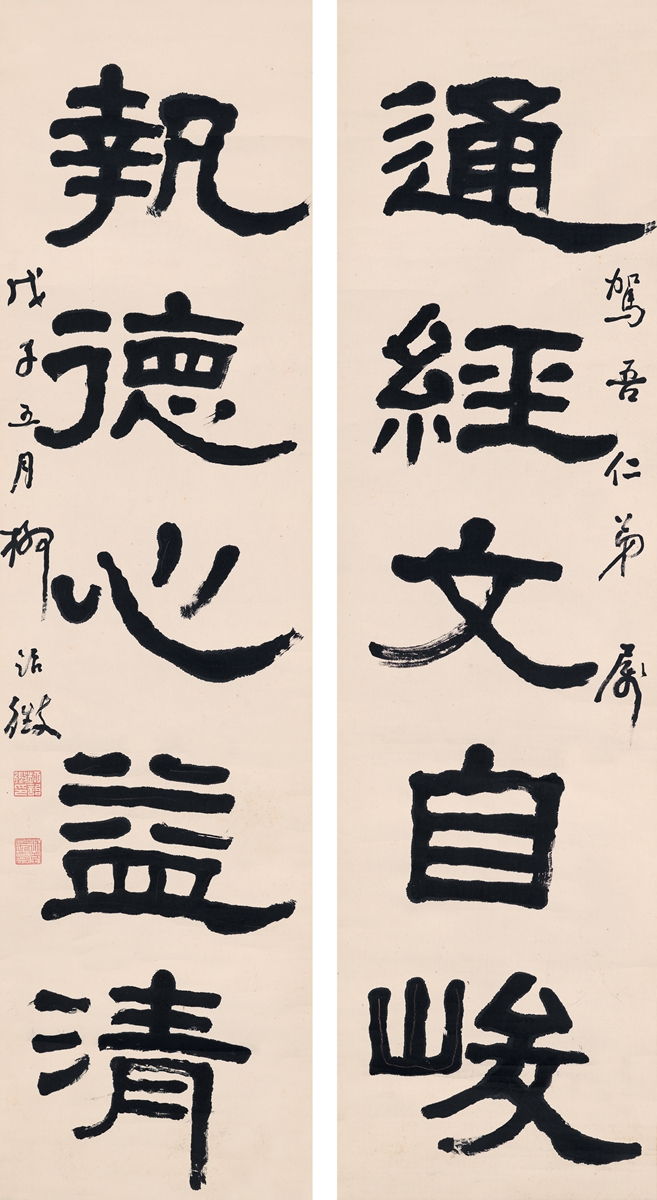 駕吾仁弟屬
通經文自峻
執德心益清
戊子五月柳詒徵